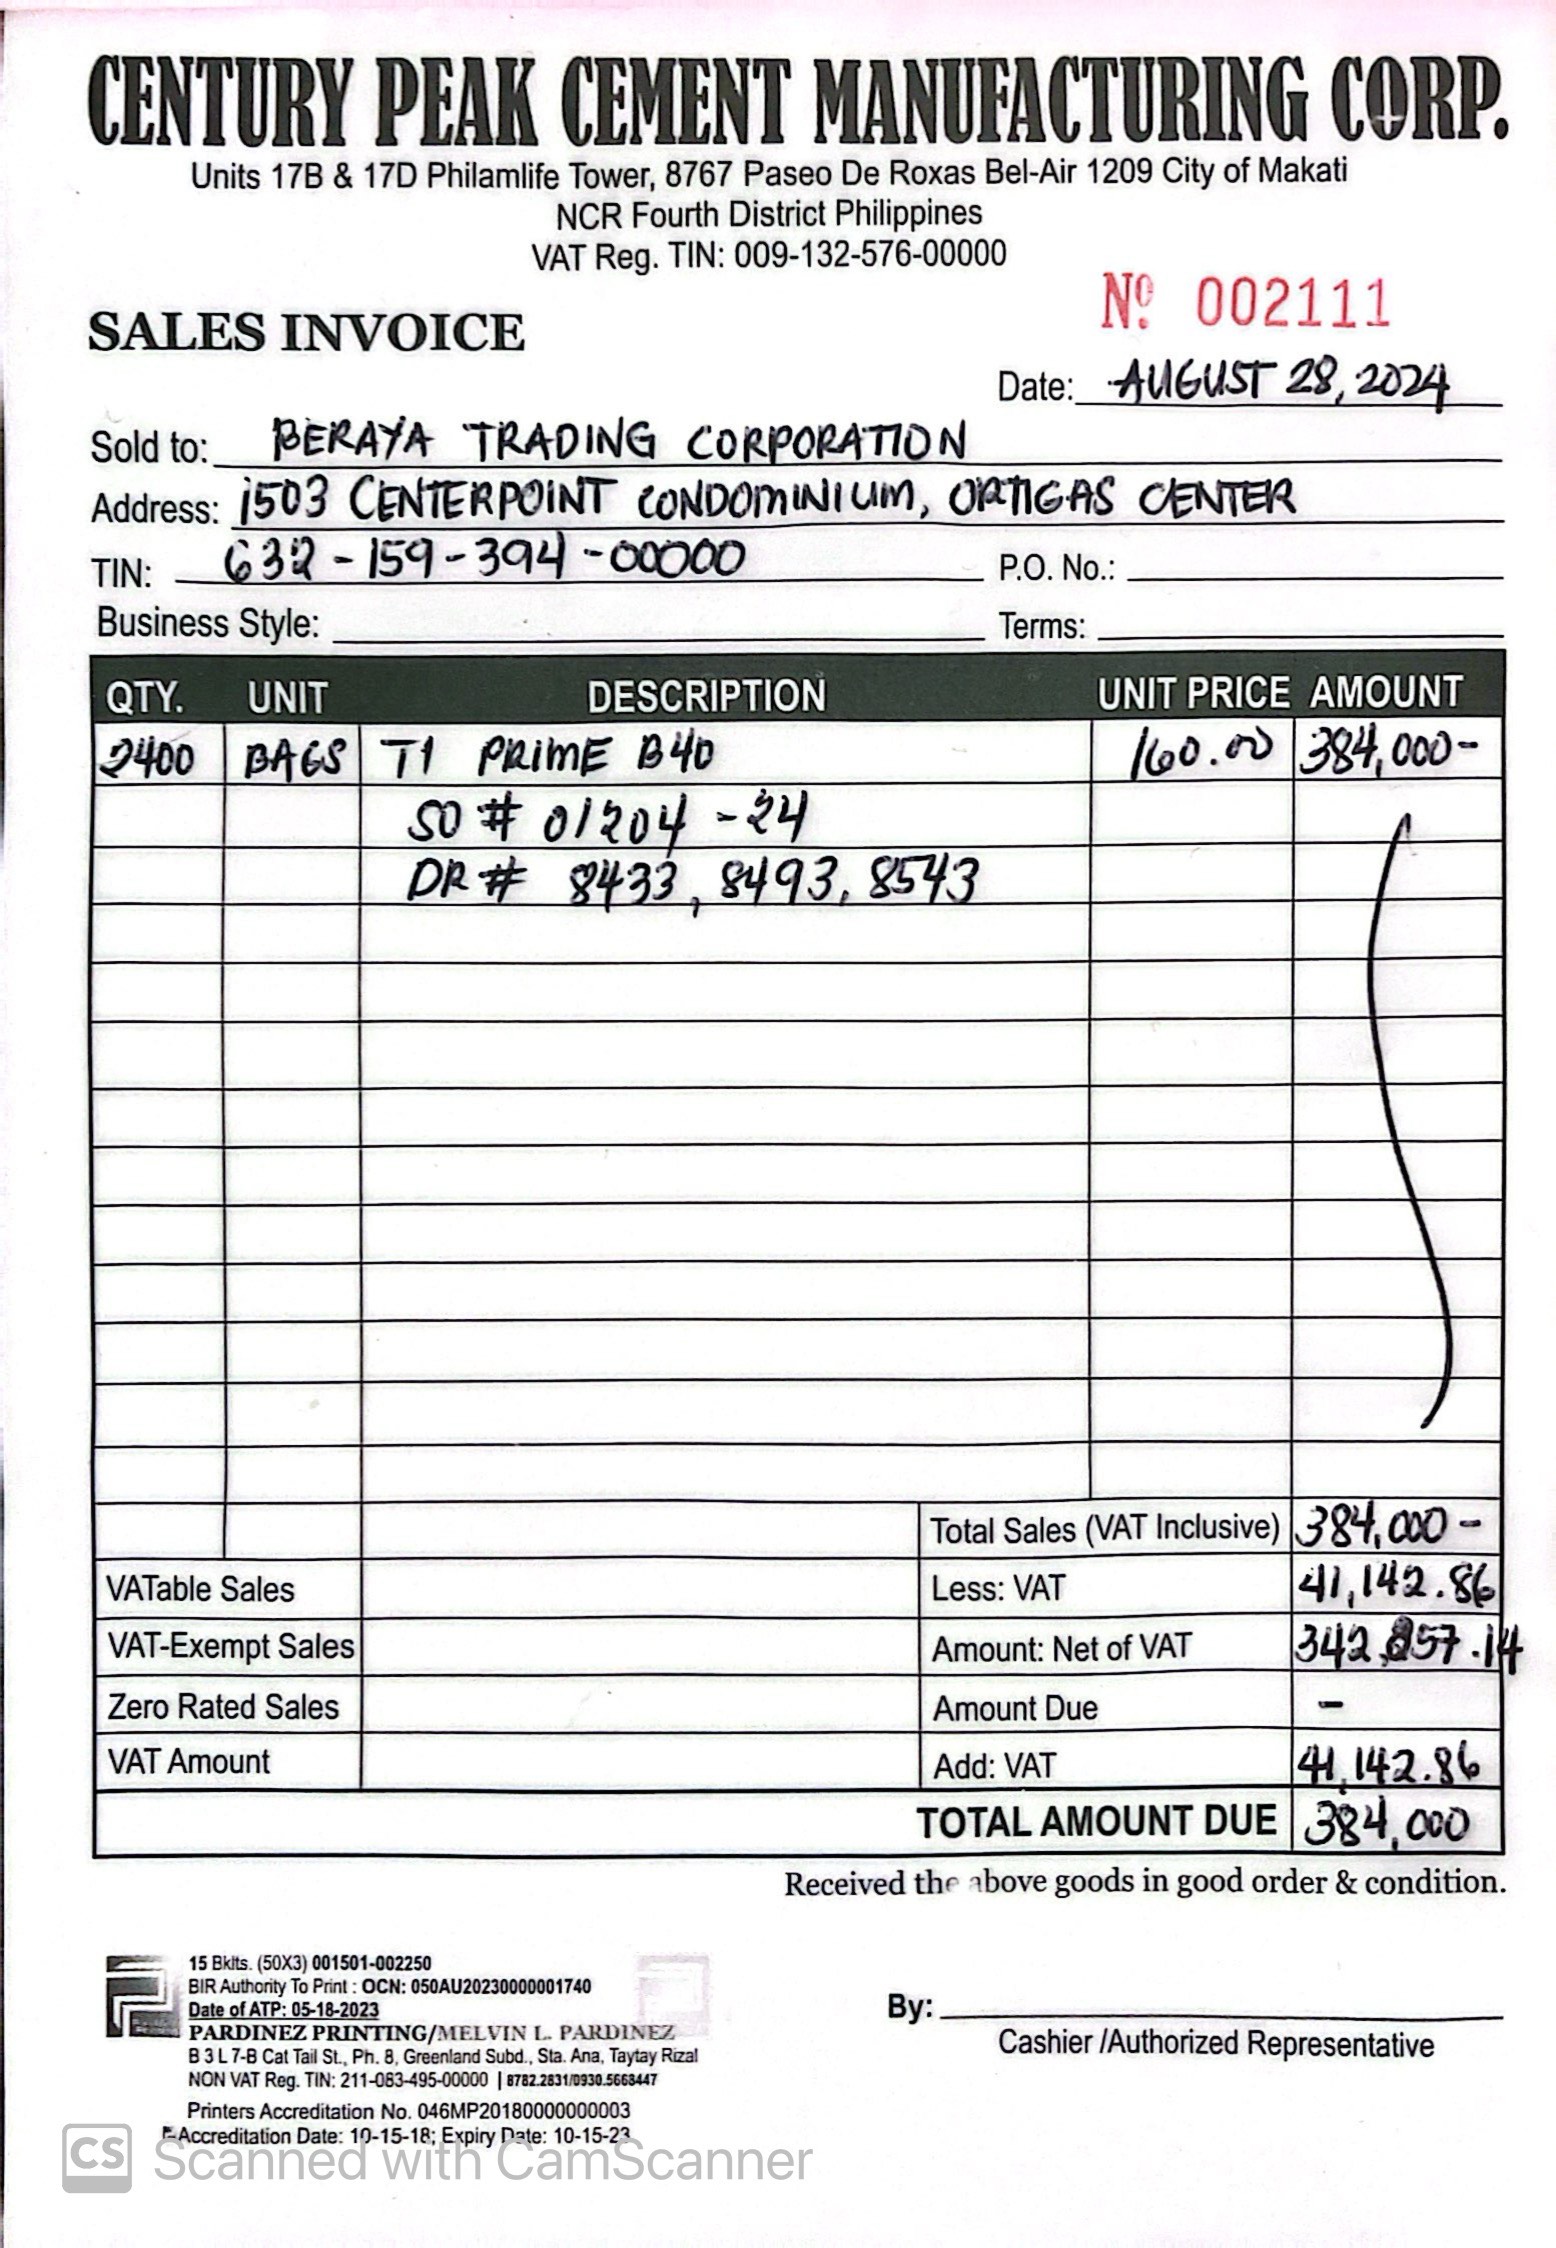 CENTURY PEAK CEMENT MANUFACTURING CORP.
Units 17B & 17D Philamlife Tower, 8767 Paseo De Roxas Bel-Air 1209 City of Makati
NCR Fourth District Philippines
VAT Reg. TIN: 009-132-576-00000
Nº 002111
SALES INVOICE
Date: AUGUST 28, 2024
Sold to: BERAYA TRADING CORPORATION
Address: 1503 CENTERPOINT CONDOMINIUM, ORTIGAS CENTER
TIN: 632-159-394-00000 P.O. No.:
Business Style: Terms:
QTY. UNIT DESCRIPTION UNIT PRICE AMOUNT
2400 BAGS T1 PRIME B40 160.00 384,000-
SO # 01204-24
DR # 8433, 8493, 8543
Total Sales (VAT Inclusive) 384,000-
VATable Sales Less: VAT 41,142.86
VAT-Exempt Sales Amount: Net of VAT 342,857.14
Zero Rated Sales Amount Due -
VAT Amount Add: VAT 41,142.86
TOTAL AMOUNT DUE 384,000
Received the above goods in good order & condition.
15 Bklts. (50X3) 001501-002250
BIR Authority To Print : OCN: 050AU20230000001740
Date of ATP: 05-18-2023
PARDINEZ PRINTING/MELVIN L. PARDINEZ
B 3 L 7-B Cat Tail St., Ph. 8, Greenland Subd., Sta. Ana, Taytay Rizal
NON VAT Reg. TIN: 211-083-495-00000 | 8782.2831/0930.5668447
Printers Accreditation No. 046MP20180000000003
Accreditation Date: 10-15-18; Expiry Date: 10-15-23
By:
Cashier /Authorized Representative
CS Scanned with CamScanner